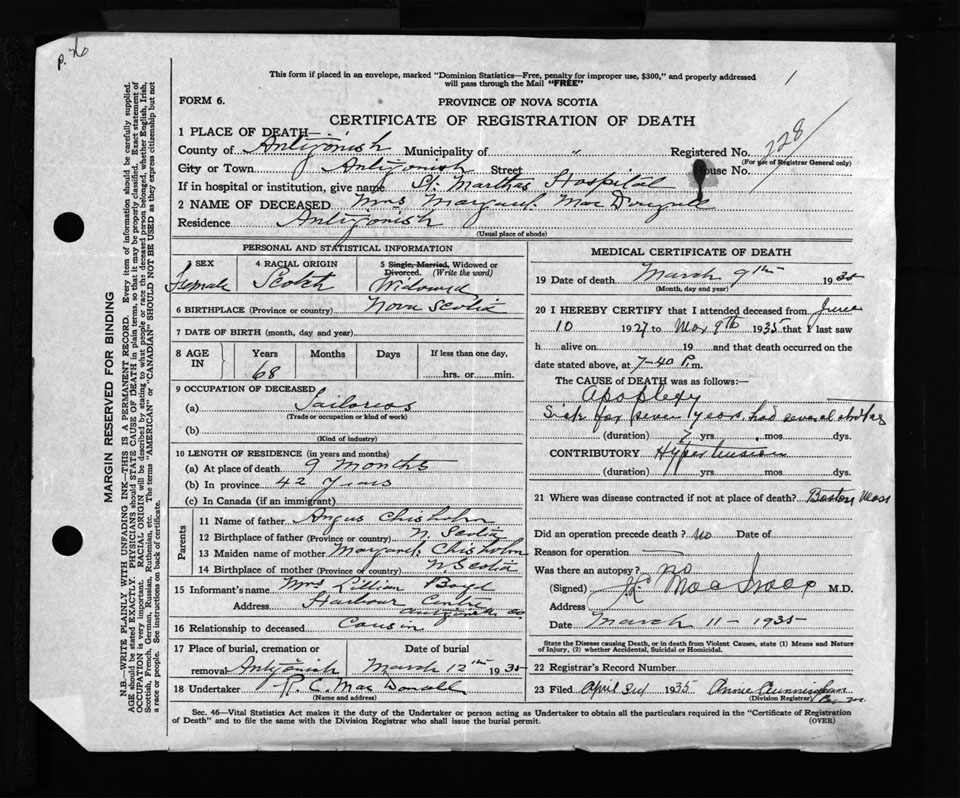 P. 76
This form if placed in an envelope, marked "Dominion Statistics—Free, penalty for improper use, $300," and properly addressed
will pass through the Mail "FREE"
1
FORM 6.
PROVINCE OF NOVA SCOTIA
CERTIFICATE OF REGISTRATION OF DEATH
228
1 PLACE OF DEATH—
County of Antigonish Municipality of " Registered No.
(For use of Registrar General only)
City or Town Antigonish Street House No.
If in hospital or institution, give name St. Marthas Hospital
2 NAME OF DECEASED Mrs Margaret MacDougall
Residence Antigonish
(Usual place of abode)
PERSONAL AND STATISTICAL INFORMATION
3 SEX 4 RACIAL ORIGIN 5 Single, Married, Widowed or
Divorced. (Write the word)
Female Scotch Widowed
6 BIRTHPLACE (Province or country) Nova Scotia
7 DATE OF BIRTH (month, day and year)
8 AGE IN Years Months Days If less than one day,
68 hrs. or min.
9 OCCUPATION OF DECEASED
(a) Tailoress
(Trade or occupation or kind of work)
(b)
(Kind of industry)
10 LENGTH OF RESIDENCE (in years and months)
(a) At place of death 9 months
(b) In province 42 years
(c) In Canada (if an immigrant)
Parents
11 Name of father Angus Chisholm
12 Birthplace of father (Province or country) N. Scotia
13 Maiden name of mother Margaret Chisholm
14 Birthplace of mother (Province or country) N. Scotia
15 Informant's name Mrs Lillian
Address Harbour Centre
Antigonish Co
16 Relationship to deceased Cousin
17 Place of burial, cremation or Date of burial
removal Antigonish March 12th 1935
18 Undertaker R. C. MacDonald
(Name and address)
MEDICAL CERTIFICATE OF DEATH
19 Date of death March 9th 1935
(Month, day and year)
20 I HEREBY CERTIFY that I attended deceased from June
10 1927 to Mar 9th 1935 that I last saw
h alive on 19 and that death occurred on the
date stated above, at 7-40 P.m.
The CAUSE of DEATH was as follows:—
Apoplexy
Sick for seven years. had several
(duration) 7 yrs. mos. dys.
CONTRIBUTORY Hypertension
(duration) yrs. mos. dys.
21 Where was disease contracted if not at place of death? Boston Mass
Did an operation precede death? No Date of
Reason for operation
Was there an autopsy? no
(Signed) M.D.
Address
Date March 11 - 1935
State the Disease causing Death, or in death from Violent Causes, state (1) Means and Nature
of Injury, (2) whether Accidental, Suicidal or Homicidal.
22 Registrar's Record Number
23 Filed April 3rd 1935 Annie Cunningham
(Division Registrar)
Sec. 46—Vital Statistics Act makes it the duty of the Undertaker or person acting as Undertaker to obtain all the particulars required in the "Certificate of Registration
of Death" and to file the same with the Division Registrar who shall issue the burial permit.
(OVER)
MARGIN RESERVED FOR BINDING
N.B.—WRITE PLAINLY WITH UNFADING INK—THIS IS A PERMANENT RECORD. Every item of information should be carefully supplied.
AGE should be stated EXACTLY. PHYSICIANS should STATE CAUSE OF DEATH in plain terms, so that it may be properly classified. Exact statement of
OCCUPATION is very important. RACIAL ORIGIN will be described by stating to what people or race the deceased person belonged, whether English, Irish,
Scottish, French, German, Russian, Ruthenian, etc. The terms "AMERICAN" or "CANADIAN" SHOULD NOT BE USED as they express citizenship but not
a race or people. See instructions on back of certificate.